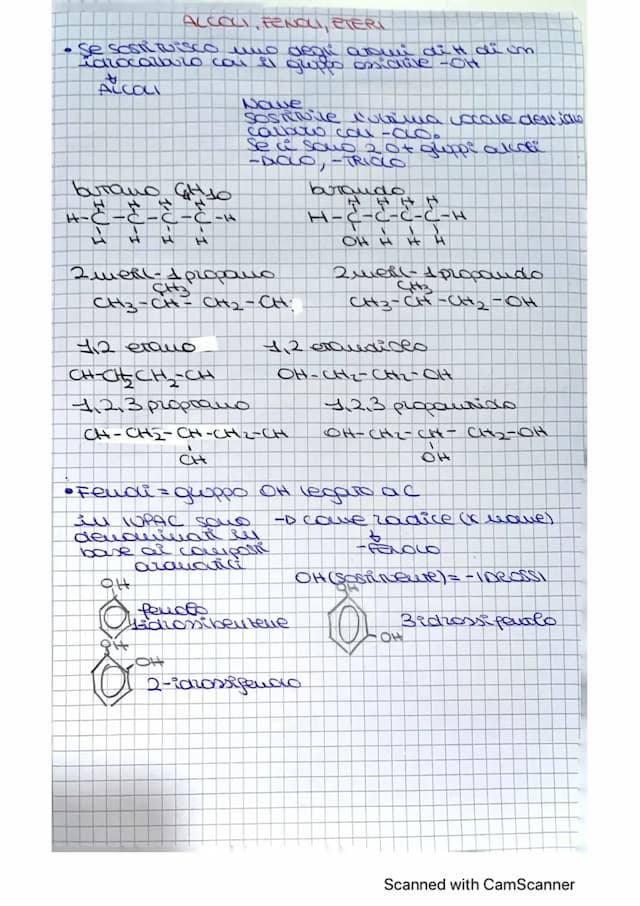 ALCOLI, FENOLI, ETERI
• Se sostituisco uno degli atomi di H di un
idrocarburo con il gruppo ossidrile -OH
ALCOLI
Nome
sostituire l'ultima vocale dell'idro
carburo con -olo.
Se ci sono 2 o + gruppi alcoli
-DIOLO, -TRIOLO
butano C4H10 butanolo
H H H H H H H H
H-C-C-C-C-H H-C-C-C-C-H
H H H H OH H H H
2 metil-1 propano 2 metil-1 propanolo
CH3 CH3
CH3-CH-CH2-CH CH3-CH-CH2-OH
1,2 etano 1,2 etandiolo
CH-CH2CH2-CH OH-CH2-CH2-OH
1,2,3 propano 1,2,3 propantriolo
CH-CH2-CH-CH2-CH OH-CH2-CH-CH2-OH
CH OH
• Fenoli = gruppo OH legato a C
in IUPAC sono → come radice (x nome)
denominati in -FENOLO
base ai composti
aromatici
OH (sostituente) = -IDROSSI
OH OH
fenolo
1idrossibenzene 3idrossifenolo
OH OH
OH
2-idrossifenolo
Scanned with CamScanner